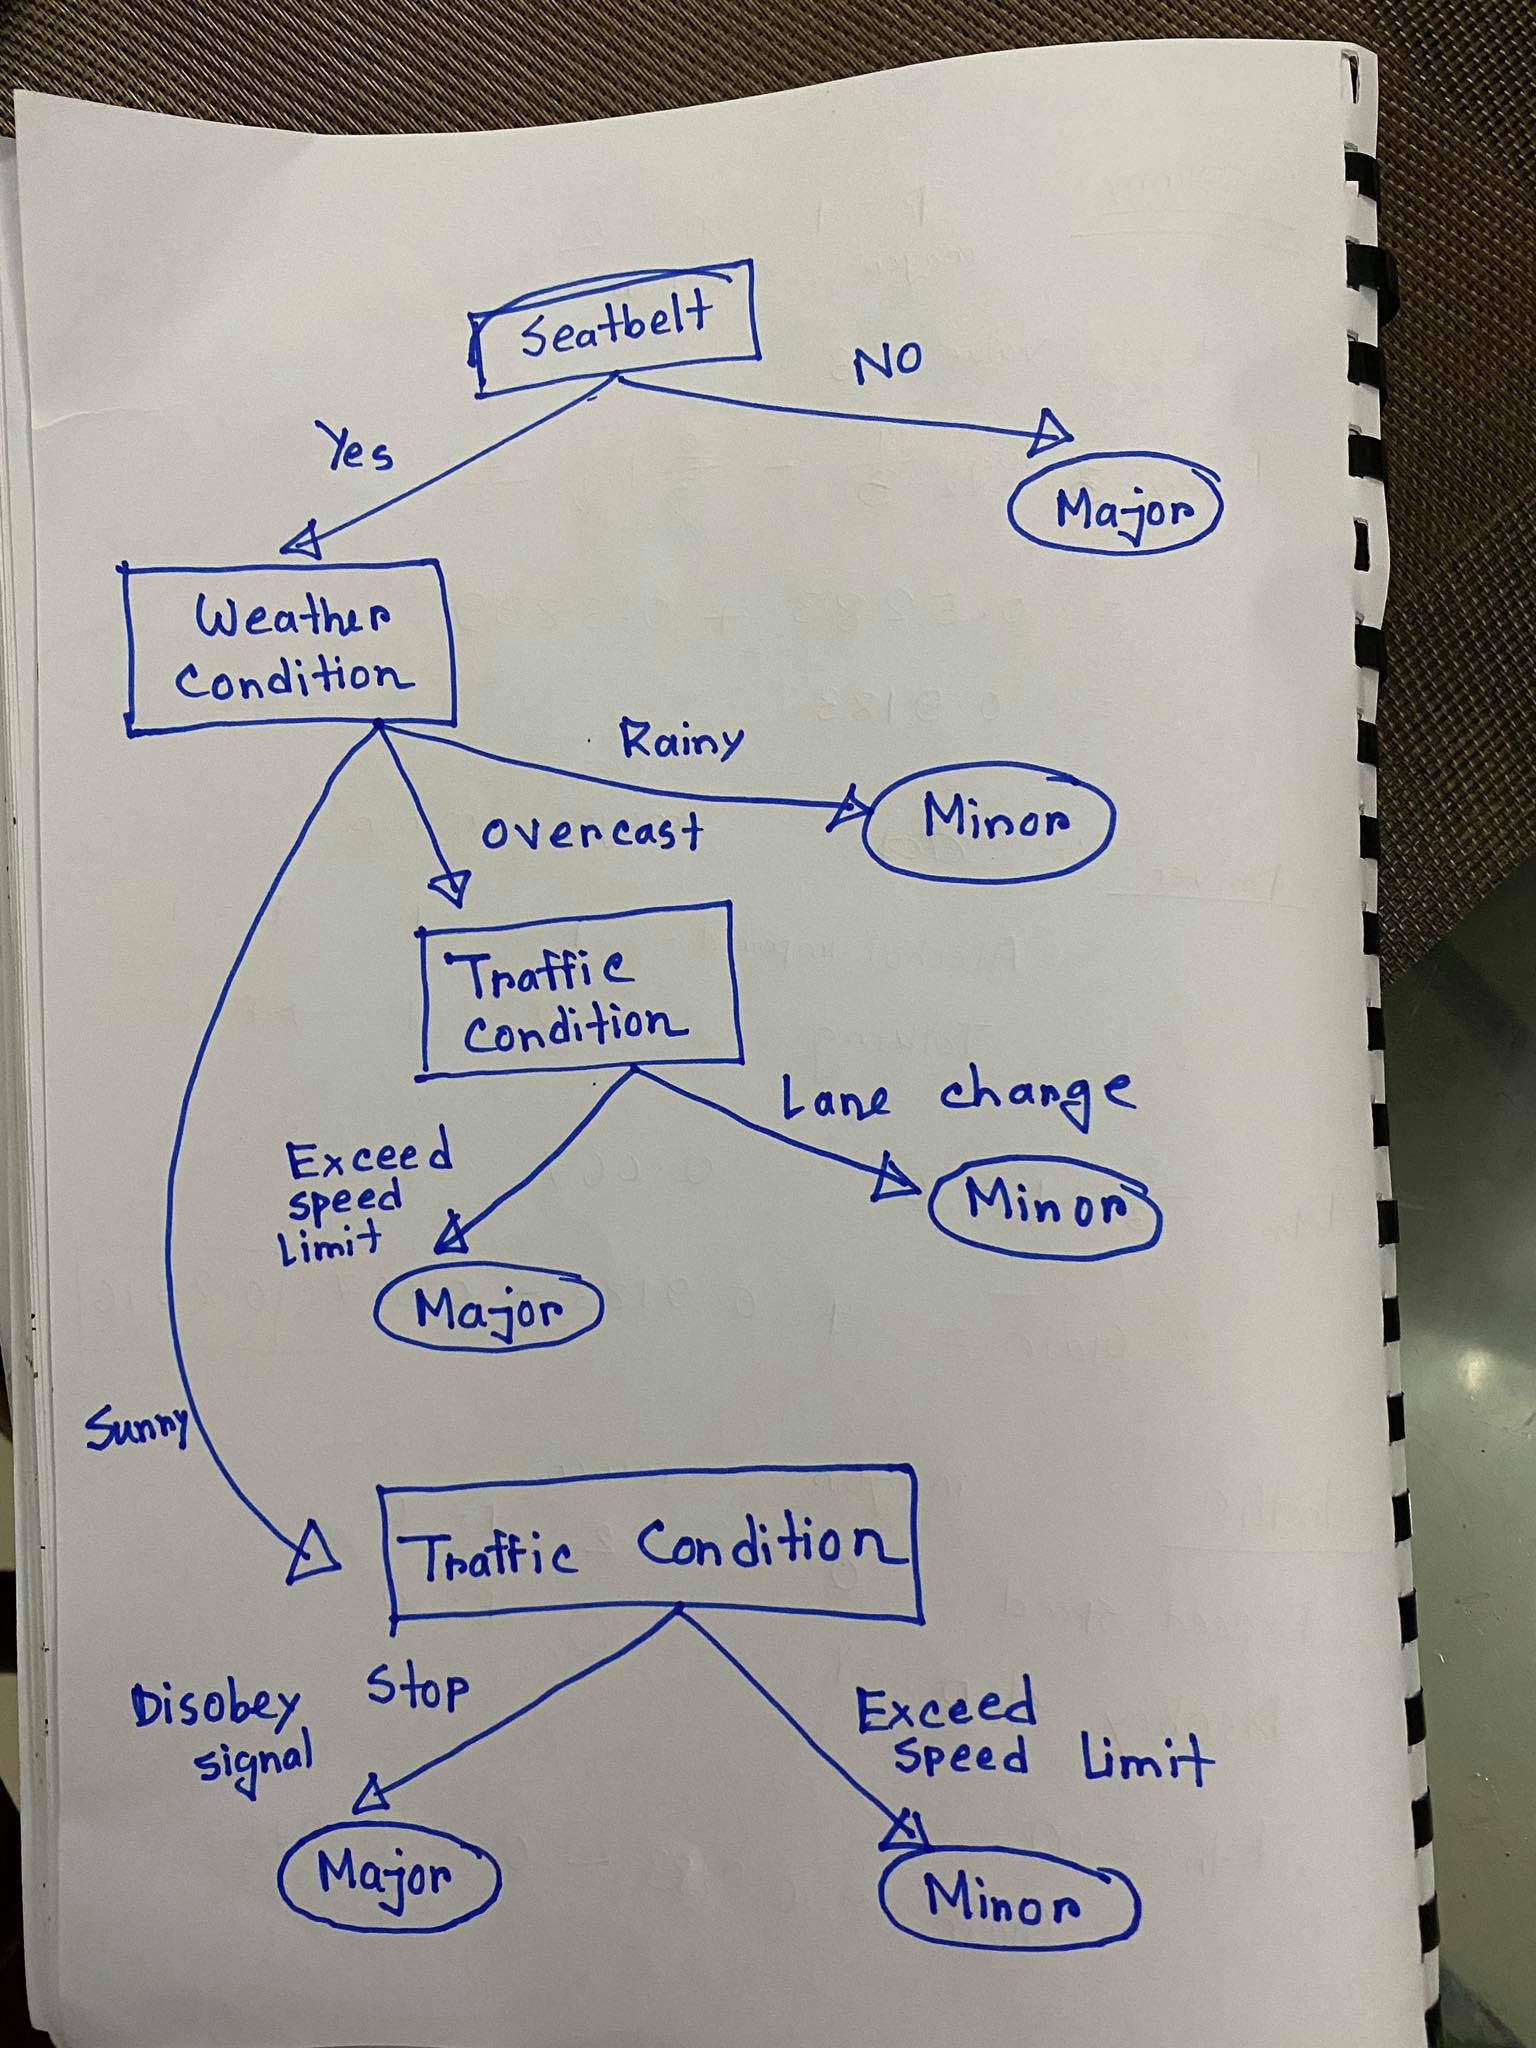 Seatbelt
NO
Yes
Major
Weather
Condition
Rainy
Minor
overcast
Traffic
Condition
Lane change
Exceed
speed
Limit
Minor
Major
Sunny
Traffic Condition
Disobey Stop
signal
Exceed
speed Limit
Major
Minor